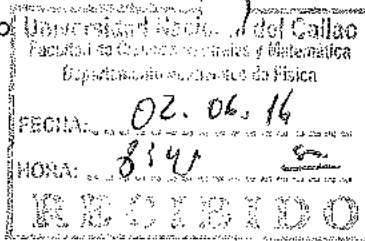 Universidad Nacional del Callao
Facultad de Ciencias Naturales y Matemática
Departamento Académico de Física
FECHA: 02. 06. 16
HORA:
RECIBIDO